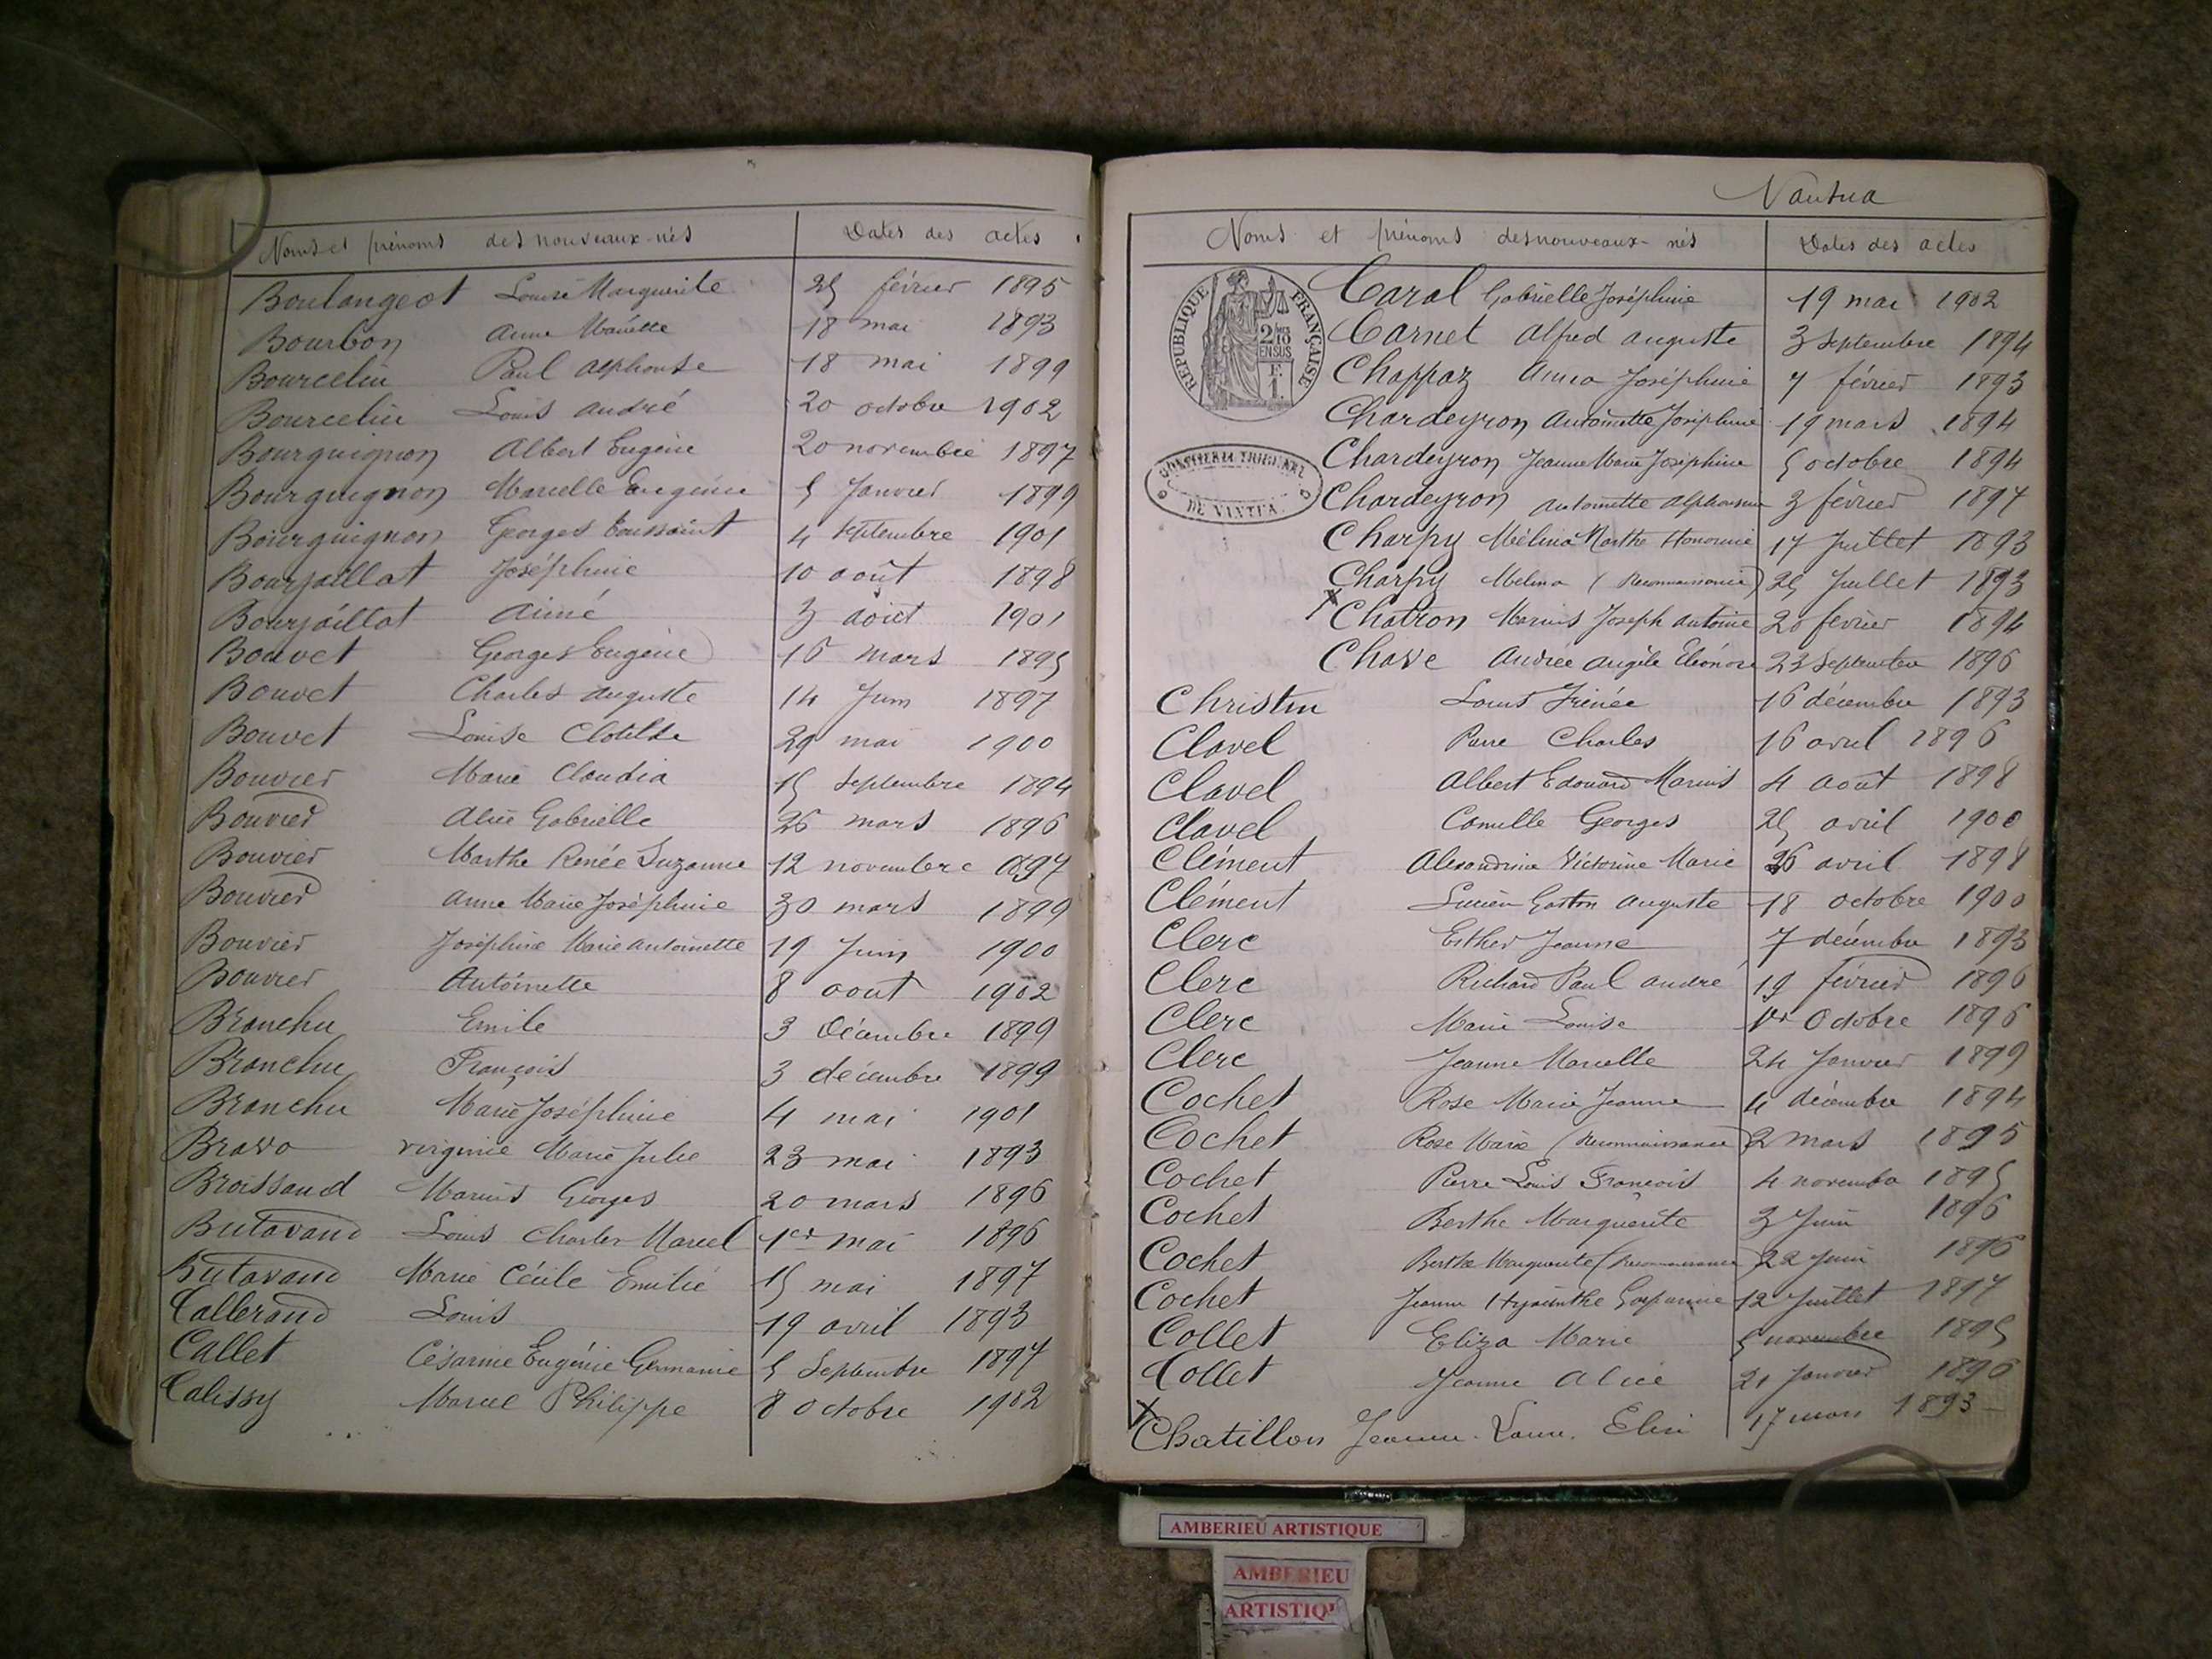 Noms et prénoms des nouveaux-nés Dates des actes
Boulangeot Louise Marguerite 25 février 1895
Bourbon Anne Mariette 18 mai 1893
Bourcelin Paul Alphonse 18 mai 1899
Bourcelin Louis André 20 octobre 1902
Bourguignon Albert Eugène 20 novembre 1897
Bourguignon Marcelle Eugénie 5 Janvier 1899
Bourguignon Georges Toussaint 4 septembre 1901
Bourjaillat Joséphine 10 août 1898
Bourjaillat Aimé 3 août 1901
Bouvet Georges Eugène 16 mars 1895
Bouvet Charles Auguste 14 Juin 1897
Bouvet Louise Clotilde 29 mai 1900
Bouvier Marie Claudia 15 Septembre 1894
Bouvier Alice Gabrielle 26 mars 1896
Bouvier Marthe Renée Suzanne 12 novembre 1897
Bouvier Anne Marie Joséphine 30 mars 1899
Bouvier Joséphine Marie Antoinette 19 Juin 1900
Bouvier Antoinette 8 aout 1902
Branchu Emile 3 Décembre 1899
Branchu François 3 décembre 1899
Branchu Marie Joséphine 4 mai 1901
Bravo Virginie Marie Julie 23 mai 1893
Broissand Marius Georges 20 mars 1896
Butavand Louis Charles Marcel 1er mai 1896
Butavand Marie Cécile Emilie 15 mai 1897
Calleraud Louis 19 avril 1893
Callet Césarine Eugénie Germanie 5 Septembre 1897
Calissy Marcel Philippe 8 octobre 1902
Nantua
Noms et prénoms des nouveaux-nés Dates des actes
RÉPUBLIQUE FRANÇAISE
2/10 EN SUS
F. 1.
DE NANTUA
Carol Gabrielle Joséphine 19 mai 1902
Carnet Alfred Auguste 3 Septembre 1894
Chappaz Anna Joséphine 7 février 1893
Chardeyron Antoinette Joséphine 19 mars 1894
Chardeyron Jeanne Marie Joséphine 5 octobre 1894
Chardeyron Antoinette Alphonsine 3 février 1897
Charpy Mélina Marthe Honorine 17 Juillet 1893
Charpy Mélina (Reconnaissance) 25 Juillet 1893
x Chatron Marius Joseph Antoine 20 février 1894
Chave Andrée Angèle Eléonore 23 Septembre 1896
Christin Louis Irénée 16 décembre 1893
Clavel Pierre Charles 16 avril 1896
Clavel Albert Edouard Marius 4 août 1898
Clavel Camille Georges 25 avril 1900
Clément Alexandrine Victorine Marie 26 avril 1898
Clément Lucien Gaston Auguste 18 octobre 1900
Clerc Esther Jeanne 7 décembre 1893
Clerc Richard Paul André 19 février 1896
Clerc Marie Louise 1er Octobre 1896
Clerc Jeanne Marcelle 24 Janvier 1899
Cochet Rose Marie Jeanne 4 décembre 1894
Cochet Rose Marie (Reconnaissance) 2 mars 1895
Cochet Pierre Louis François 4 novembre 1895
Cochet Berthe Marguerite 3 Juin 1896
Cochet Berthe Marguerite (reconnaissance) 22 Juin 1896
Cochet Jeanne Hyacinthe 12 Juillet 1897
Collet Eliza Marie 5 novembre 1895
Collet Jeanne Alice 21 Janvier 1896
x Chatillon Jeanne 17 mars 1893
AMBERIEU ARTISTIQUE
AMBERIEU
ARTISTIQU